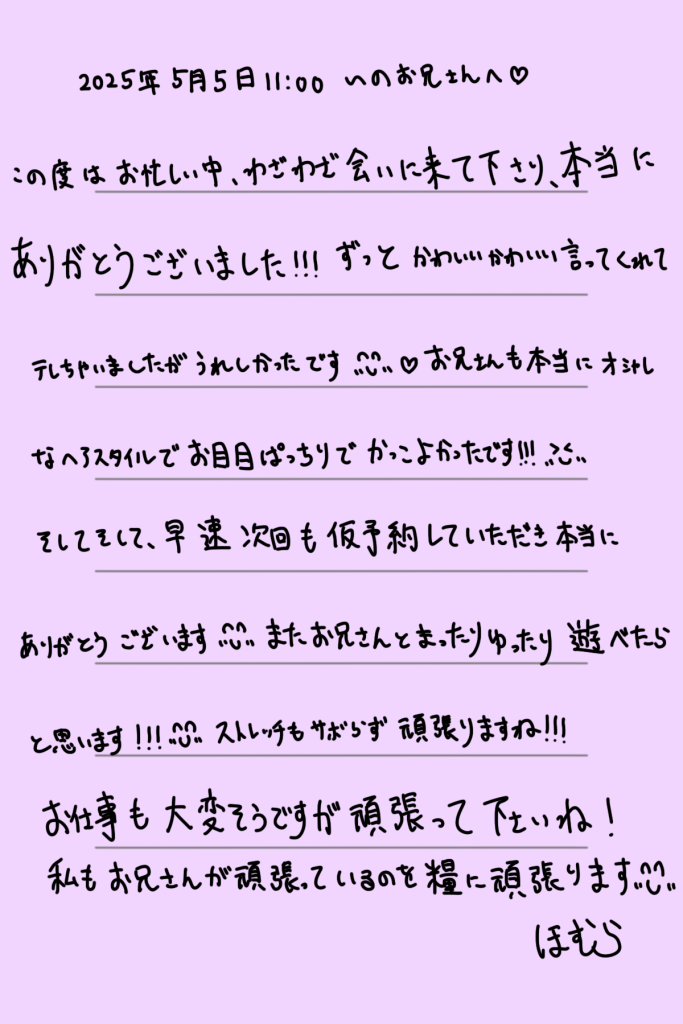 2025年5月5日11:00 いのお兄さんへ♡
この度はお忙しい中、わざわざ会いに来て下さり、本当に
ありがとうございました!!! ずっとかわいいかわいい言ってくれて
テレちゃいましたがうれしかったです ♡お兄さんも本当にオシャレ
なヘアスタイルでお目目ぱっちりでかっこよかったです!!!
そしてそして、早速次回も仮予約していただき本当に
ありがとうございます またお兄さんとまったりゆったり遊べたら
と思います!!! ストレッチもサボらず頑張りますね!!!
お仕事も大変そうですが頑張って下さいね!
私もお兄さんが頑張っているのを糧に頑張ります
ほむら